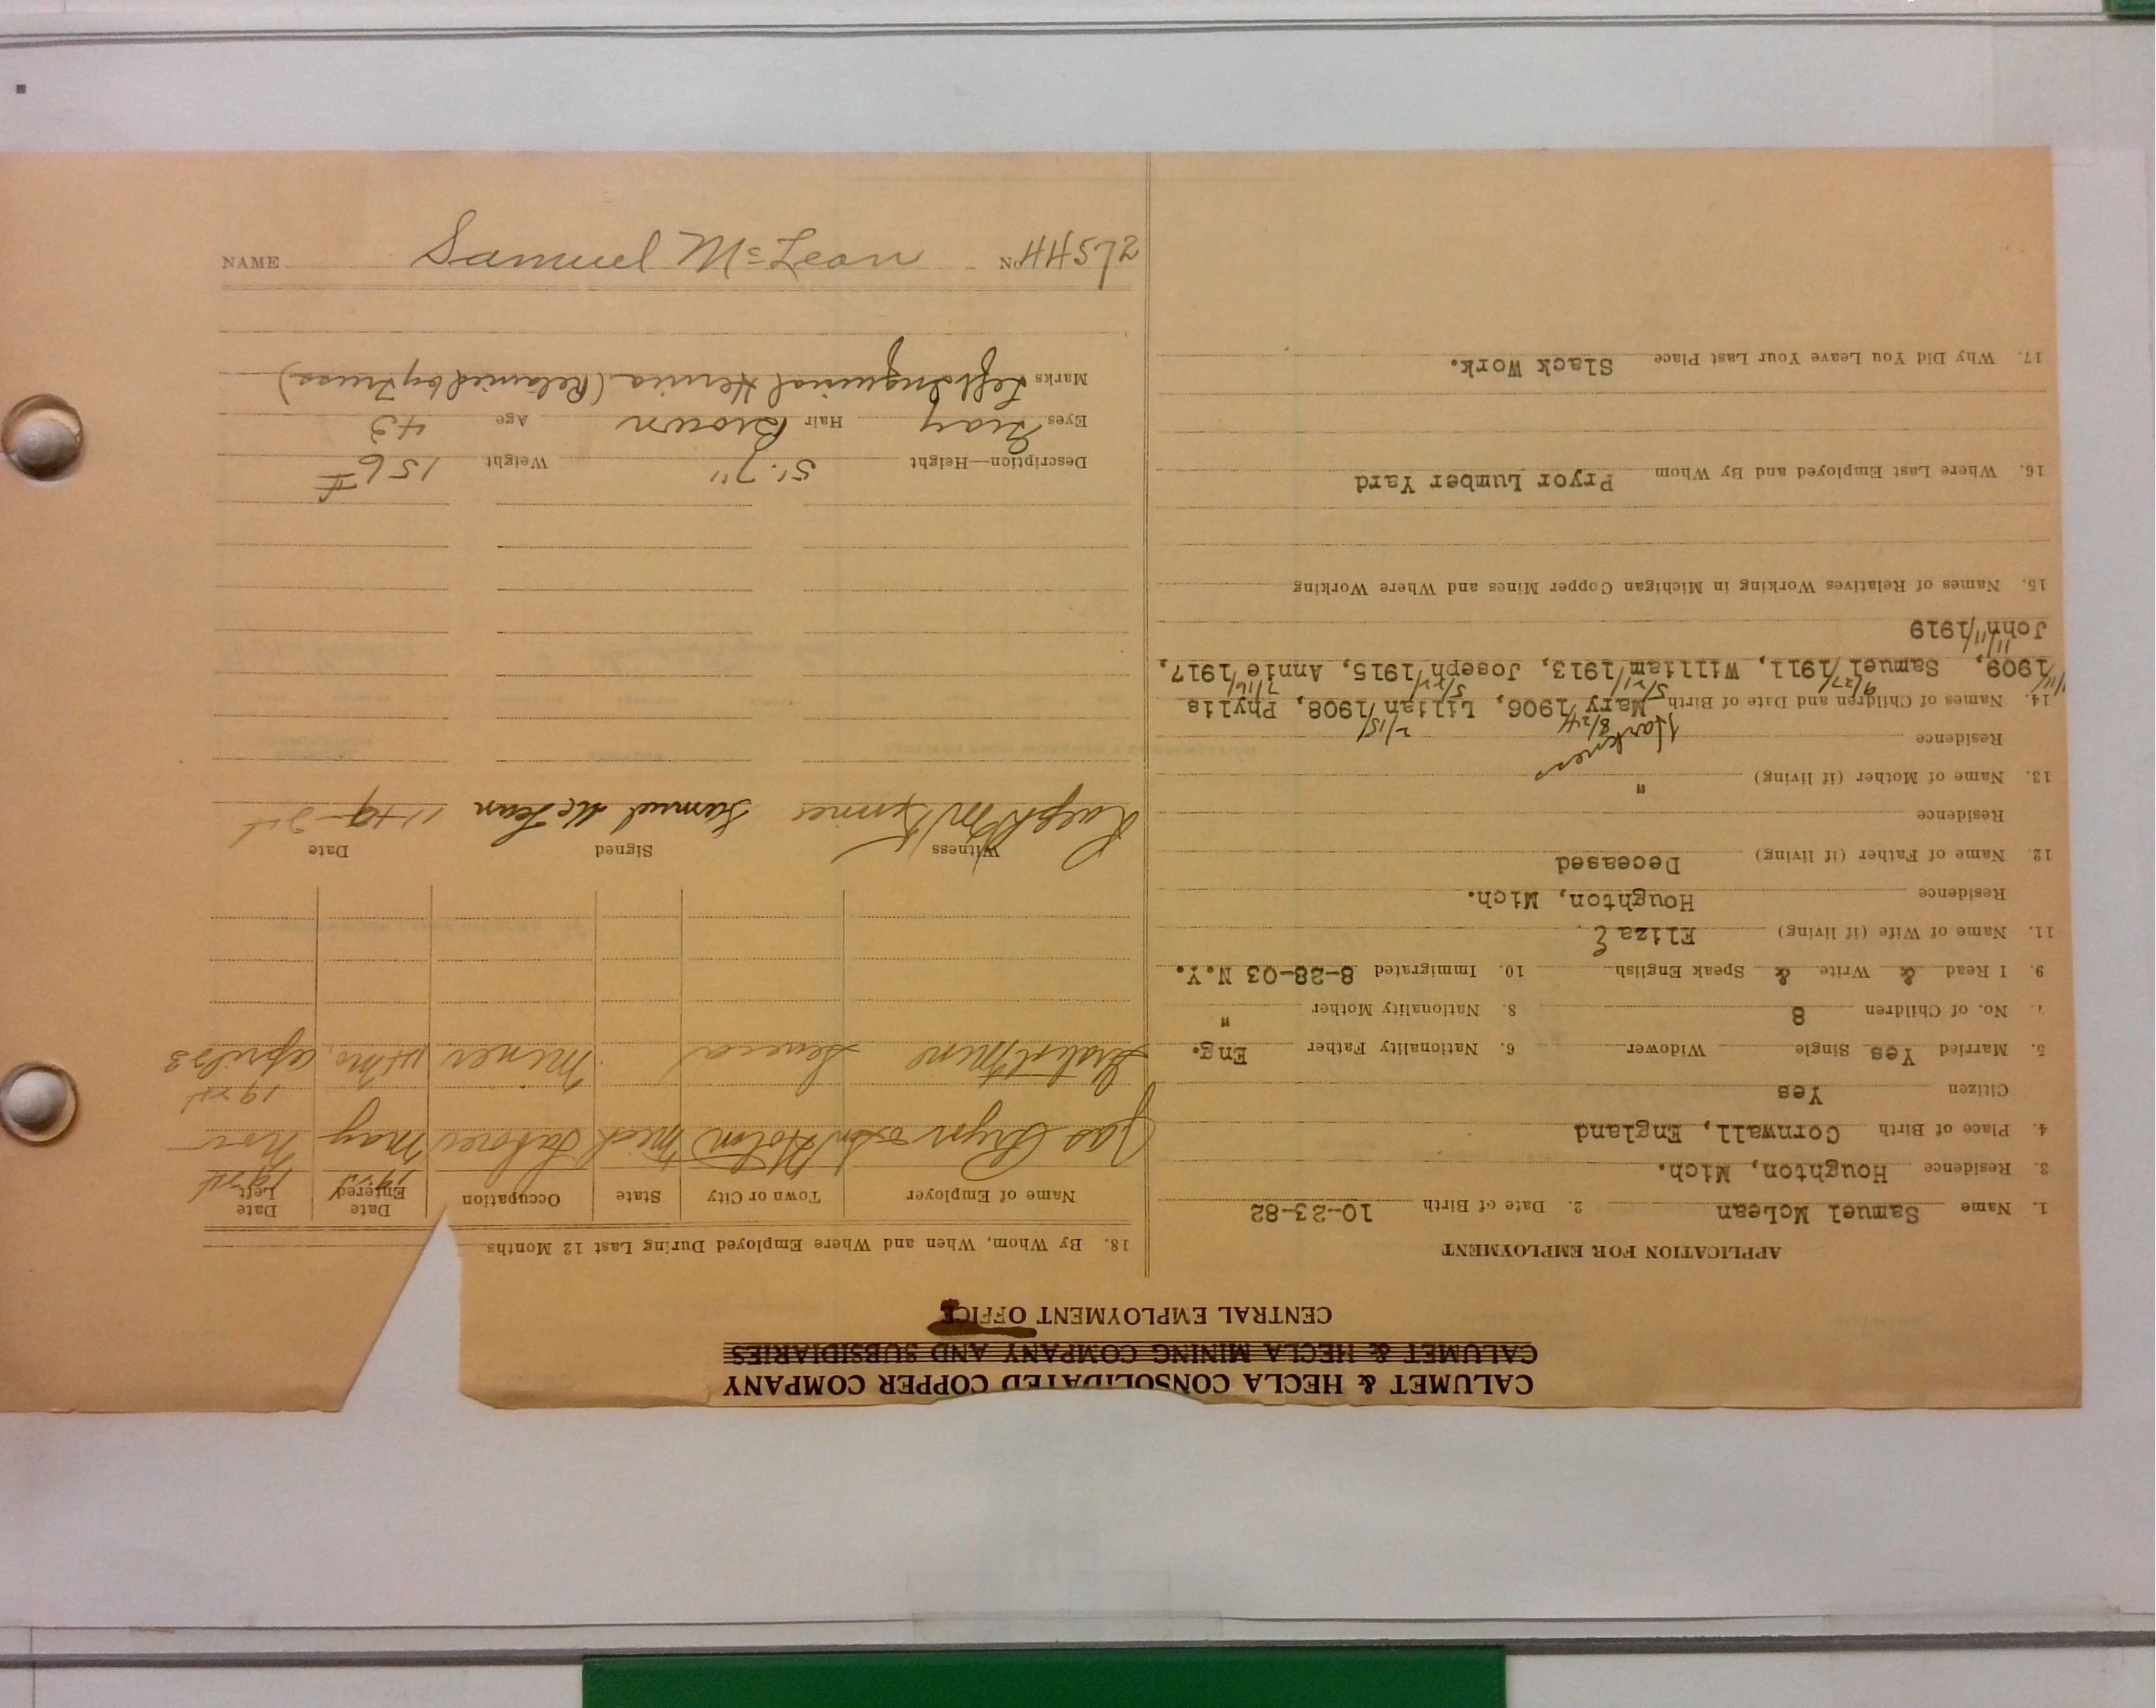 CALUMET & HECLA CONSOLIDATED COPPER COMPANY
CALUMET & HECLA MINING COMPANY AND SUBSIDIARIES
CENTRAL EMPLOYMENT OFFICE
APPLICATION FOR EMPLOYMENT
1. Name Samuel McLean 2. Date of Birth 10-23-82
3. Residence Houghton, Mich.
4. Place of Birth Cornwall, England
Citizen Yes
5. Married Yes Single Widower 6. Nationality Father Eng.
7. No. of Children 8 8. Nationality Mother "
9. I Read & Write & Speak English 10. Immigrated 8-28-03 N.Y.
11. Name of Wife (if living) Eliza E
Residence Houghton, Mich.
12. Name of Father (if living) Deceased
Residence
13. Name of Mother (if living) "
Residence
Harkness
8/24 2/15
14. Names of Children and Date of Birth Mary/1906, Lilian/1908, Phylis
1/11 9/27 5/21 5/22 7/16
1909, Samuel/1911, William/1913, Joseph/1915, Annie/1917,
11/11
John/1919
15. Names of Relatives Working in Michigan Copper Mines and Where Working
16. Where Last Employed and By Whom Pryor Lumber Yard
17. Why Did You Leave Your Last Place Slack Work.
18. By Whom, When and Where Employed During Last 12 Months
Name of Employer Town or City State Occupation Date Entered Date Left
1924 1924
Jas Pryor & Son Holm Mich Laborer May Nov
1924
Mine Seneca Miner 4 Mo, April 23
Witness Signed Date
Ralph Samuel McLean 11-19-24
Description—Height 5'.7" Weight 156 #
Eyes Gray Hair Brown Age 42
Marks Left Inguinal Hernia (Retained by Truss)
NAME Samuel McLean No. 44572